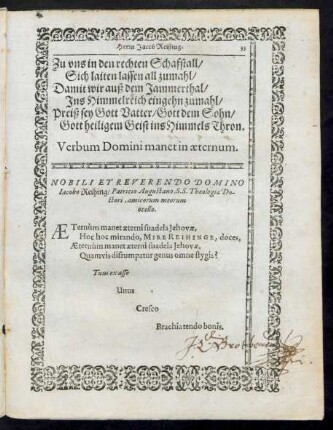 Herm Jacob Reihing. 33
Zu vns in den rechten Schafstall/
Sich laiten lassen all zumahl/
Damit wir auß dem Jammerthal/
Ins Himmelreich eingehn zumahl/
Preiß sey Gott Vatter/ Gott dem Sohn/
Gott heiligem Geist ins Himmels Thron.
Verbum Domini manet in æternum.
NOBILI ET REVERENDO DOMINO
Iacobo Reihing/ Patricio Augustano, S.S. Theologiæ Do-
ctori, amicorum meorum
ocello.
ÆTernùm manet æterni suadela Jehovæ,
Hoc hoc mirando, MIRE REIHINGE, doces,
Æternùm manet æterni suadela Jehovæ,
Quamvis disrumpatur genus omne stygis?
Tuus ex asse
Unus
Cresco
Brachia tendo bonis.